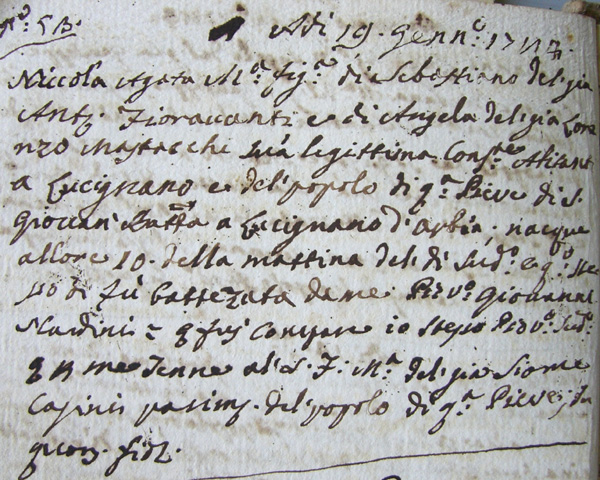 Adi 19. Genn.º 17
Niccola Agata M.ª fig.ª di Sebastiano del già
Ant.º Fioravanti e di Angela del già Lore
nzo Mastacchi sua legittima Cons.te Abitant
a Lucignano e del popolo di q.ª Pieve di S.
Giovan Batta a Lucignano d'arbia, nacque
allore 10. della mattina del dì Sud.º e q.º ste
so dì fù battezzata da me Piev.º Giovanni
Nardini e fu Compare io stesso Piev.º Sud.º
me Tenne al S. F. M.ª del già Simone
Casini parim. del popolo di q.ª Pieve, In
quor. fid.